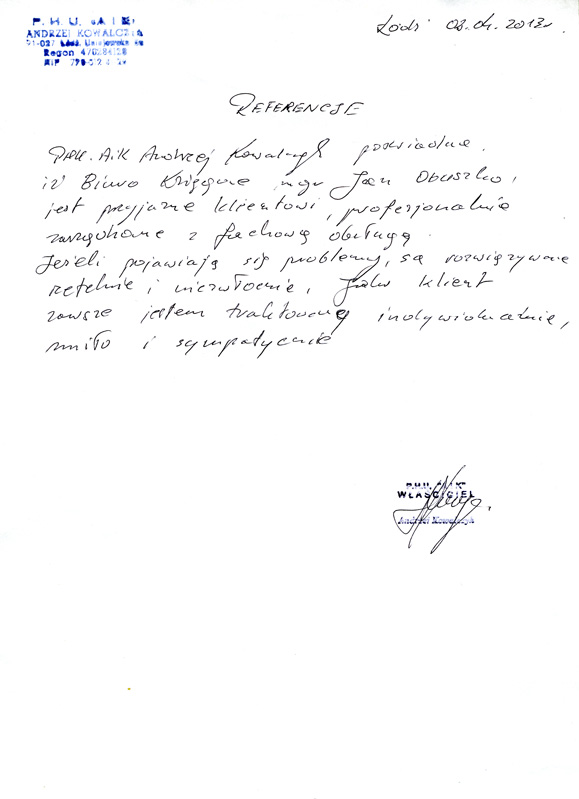 P.H.U. "A i K"
ANDRZEJ KOWALCZYK
Łódź,
Regon
NIP
Łódź 03.04.2013r.
REFERENCJE
P.H.U. AiK Andrzej Kowalczyk poświadcza,
iż Biuro Księgowe mgr Jan Obuszko,
jest przyjazne klientowi, profesjonalnie
zarządzane z fachową obsługą.
Jeżeli pojawiają się problemy, są rozwiązywane
rzetelnie i niezwłocznie, Jako klient
zawsze jestem traktowany indywidualnie,
miło i sympatycznie
P.H.U. "AiK"
WŁAŚCICIEL
Andrzej Kowalczyk